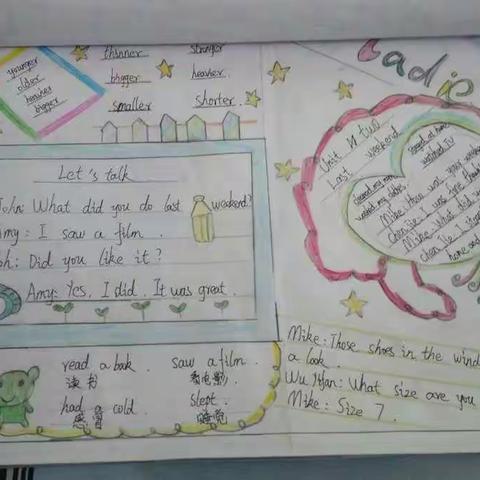 younger
older
heavier
bigger
thinner stronger
bigger heavier.
smaller shorter.
Let's talk
John: What did you do last weekend?
Amy: I saw a film.
John: Did you like it?
Amy: Yes, I did. It was great.
read a book. saw a film.
读书 看电影
had a cold. slept.
感冒 睡觉
Unit two
Last weekend
stayed at home
watched TV
washed my
Mike: How was your
Mike: What did
home and
Mike: Those shoes in the wind
a look.
Wu Yifan: What size are you
Mike: Size 7.